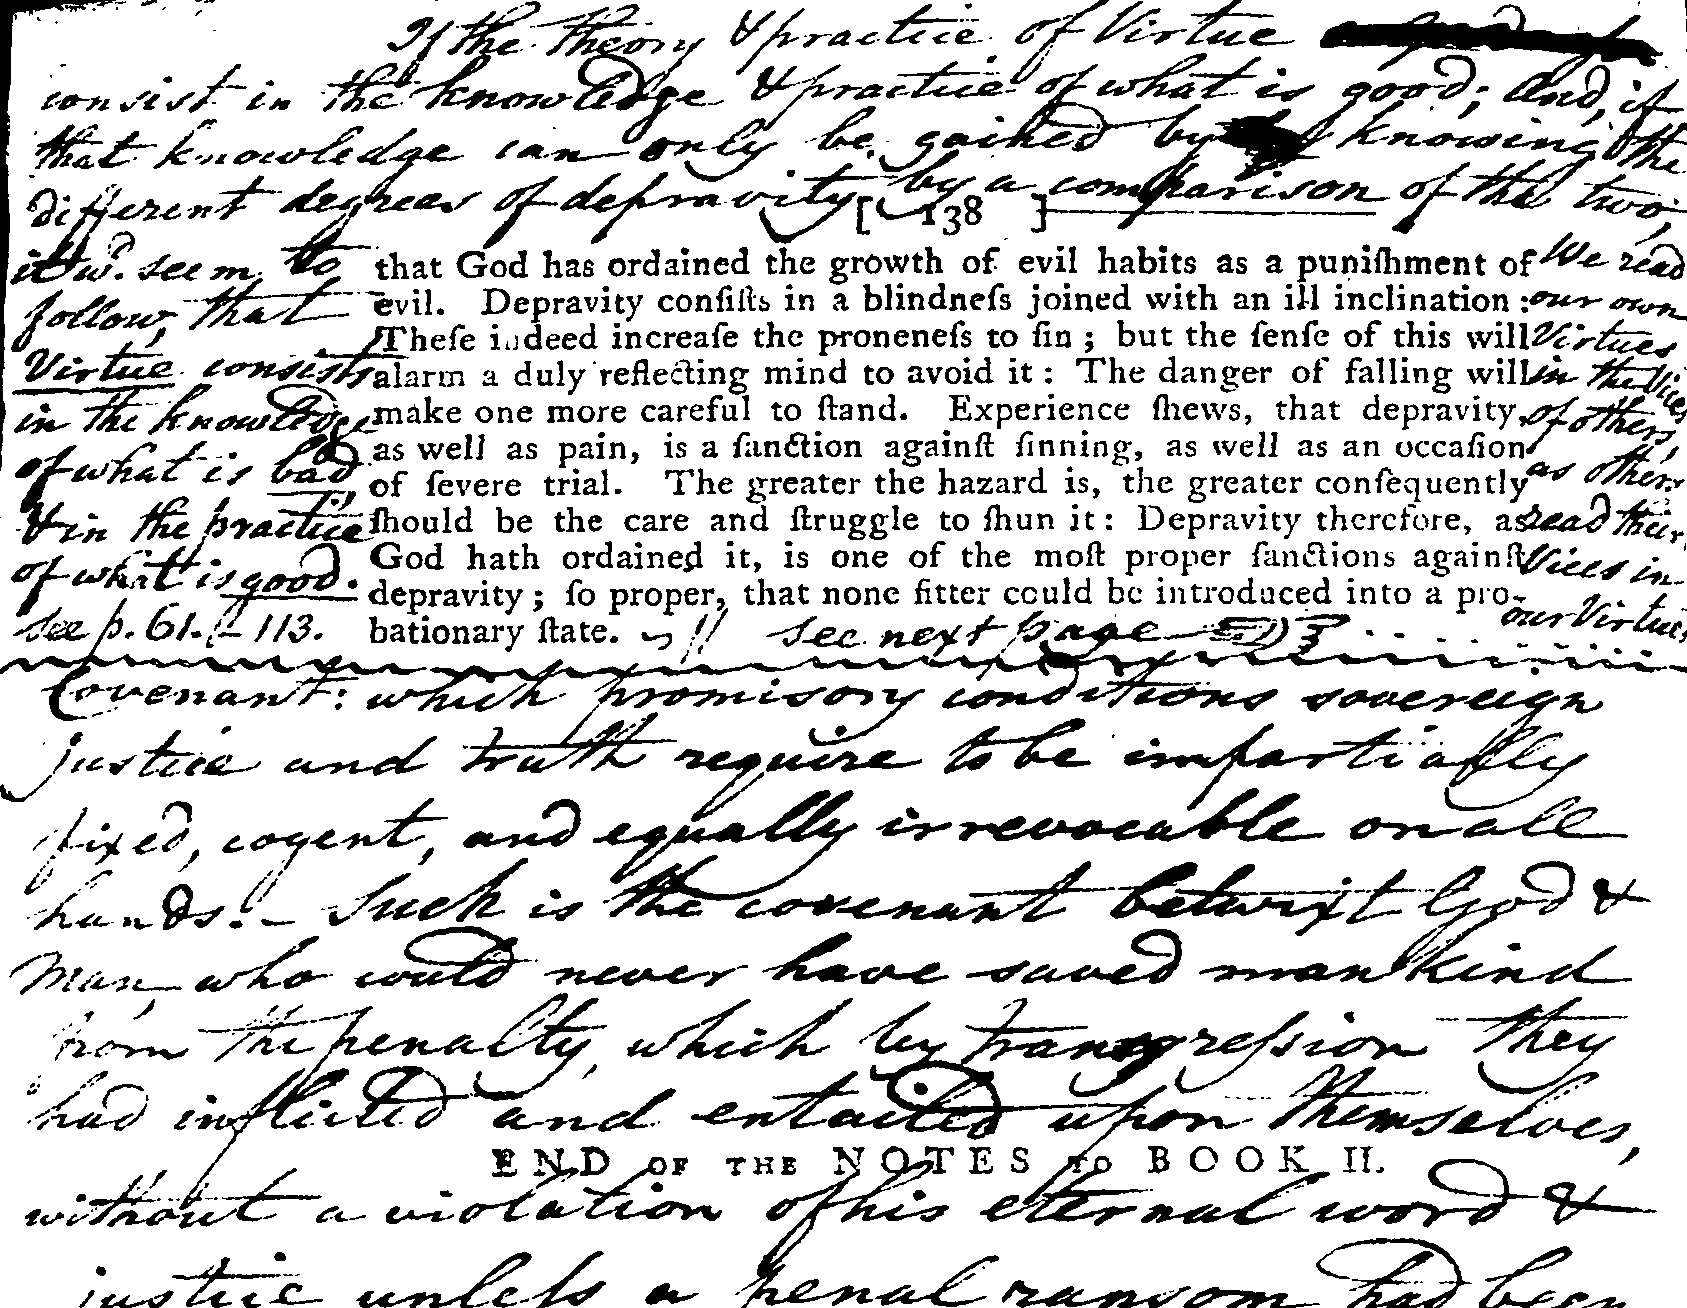 If the theory & practice of Virtue
consist in the knowledge & practice of what is good; And, if
that knowledge can only be gained by knowing the
different degrees of depravity by a comparison of the two,
[ 138 ]
it wd. seem to
follow, that
Virtue consists
in the knowledge
of what is bad,
& in the practice
of what is good.
see p. 61. - 113.
that God has ordained the growth of evil habits as a puniſhment of
evil. Depravity conſiſts in a blindneſs joined with an ill inclination :
Theſe indeed increaſe the proneneſs to ſin ; but the ſenſe of this will
alarm a duly reflecting mind to avoid it : The danger of falling will
make one more careful to ſtand. Experience ſhews, that depravity,
as well as pain, is a ſanction againſt ſinning, as well as an occaſion
of ſevere trial. The greater the hazard is, the greater conſequently
ſhould be the care and ſtruggle to ſhun it : Depravity therefore, as
God hath ordained it, is one of the moſt proper ſanctions againſt
depravity ; ſo proper, that none fitter could be introduced into a pro-
bationary ſtate. see next page
We read
our own
Virtues
in the Vices
of others,
as others
read their
Vices in
our Virtues
Covenant: which promisory conditions sovereign
justice and truth require to be impartially
fixed, cogent, and equally irrevocable on all
hands. - Such is the covenant betwixt God &
Man, who would never have saved mankind
from the penalty, which by transgreſsion they
had inflicted and entailed upon themselves,
END OF THE NOTES TO BOOK II.
without a violation of his eternal word &
justice unleſs a penal ransom had been